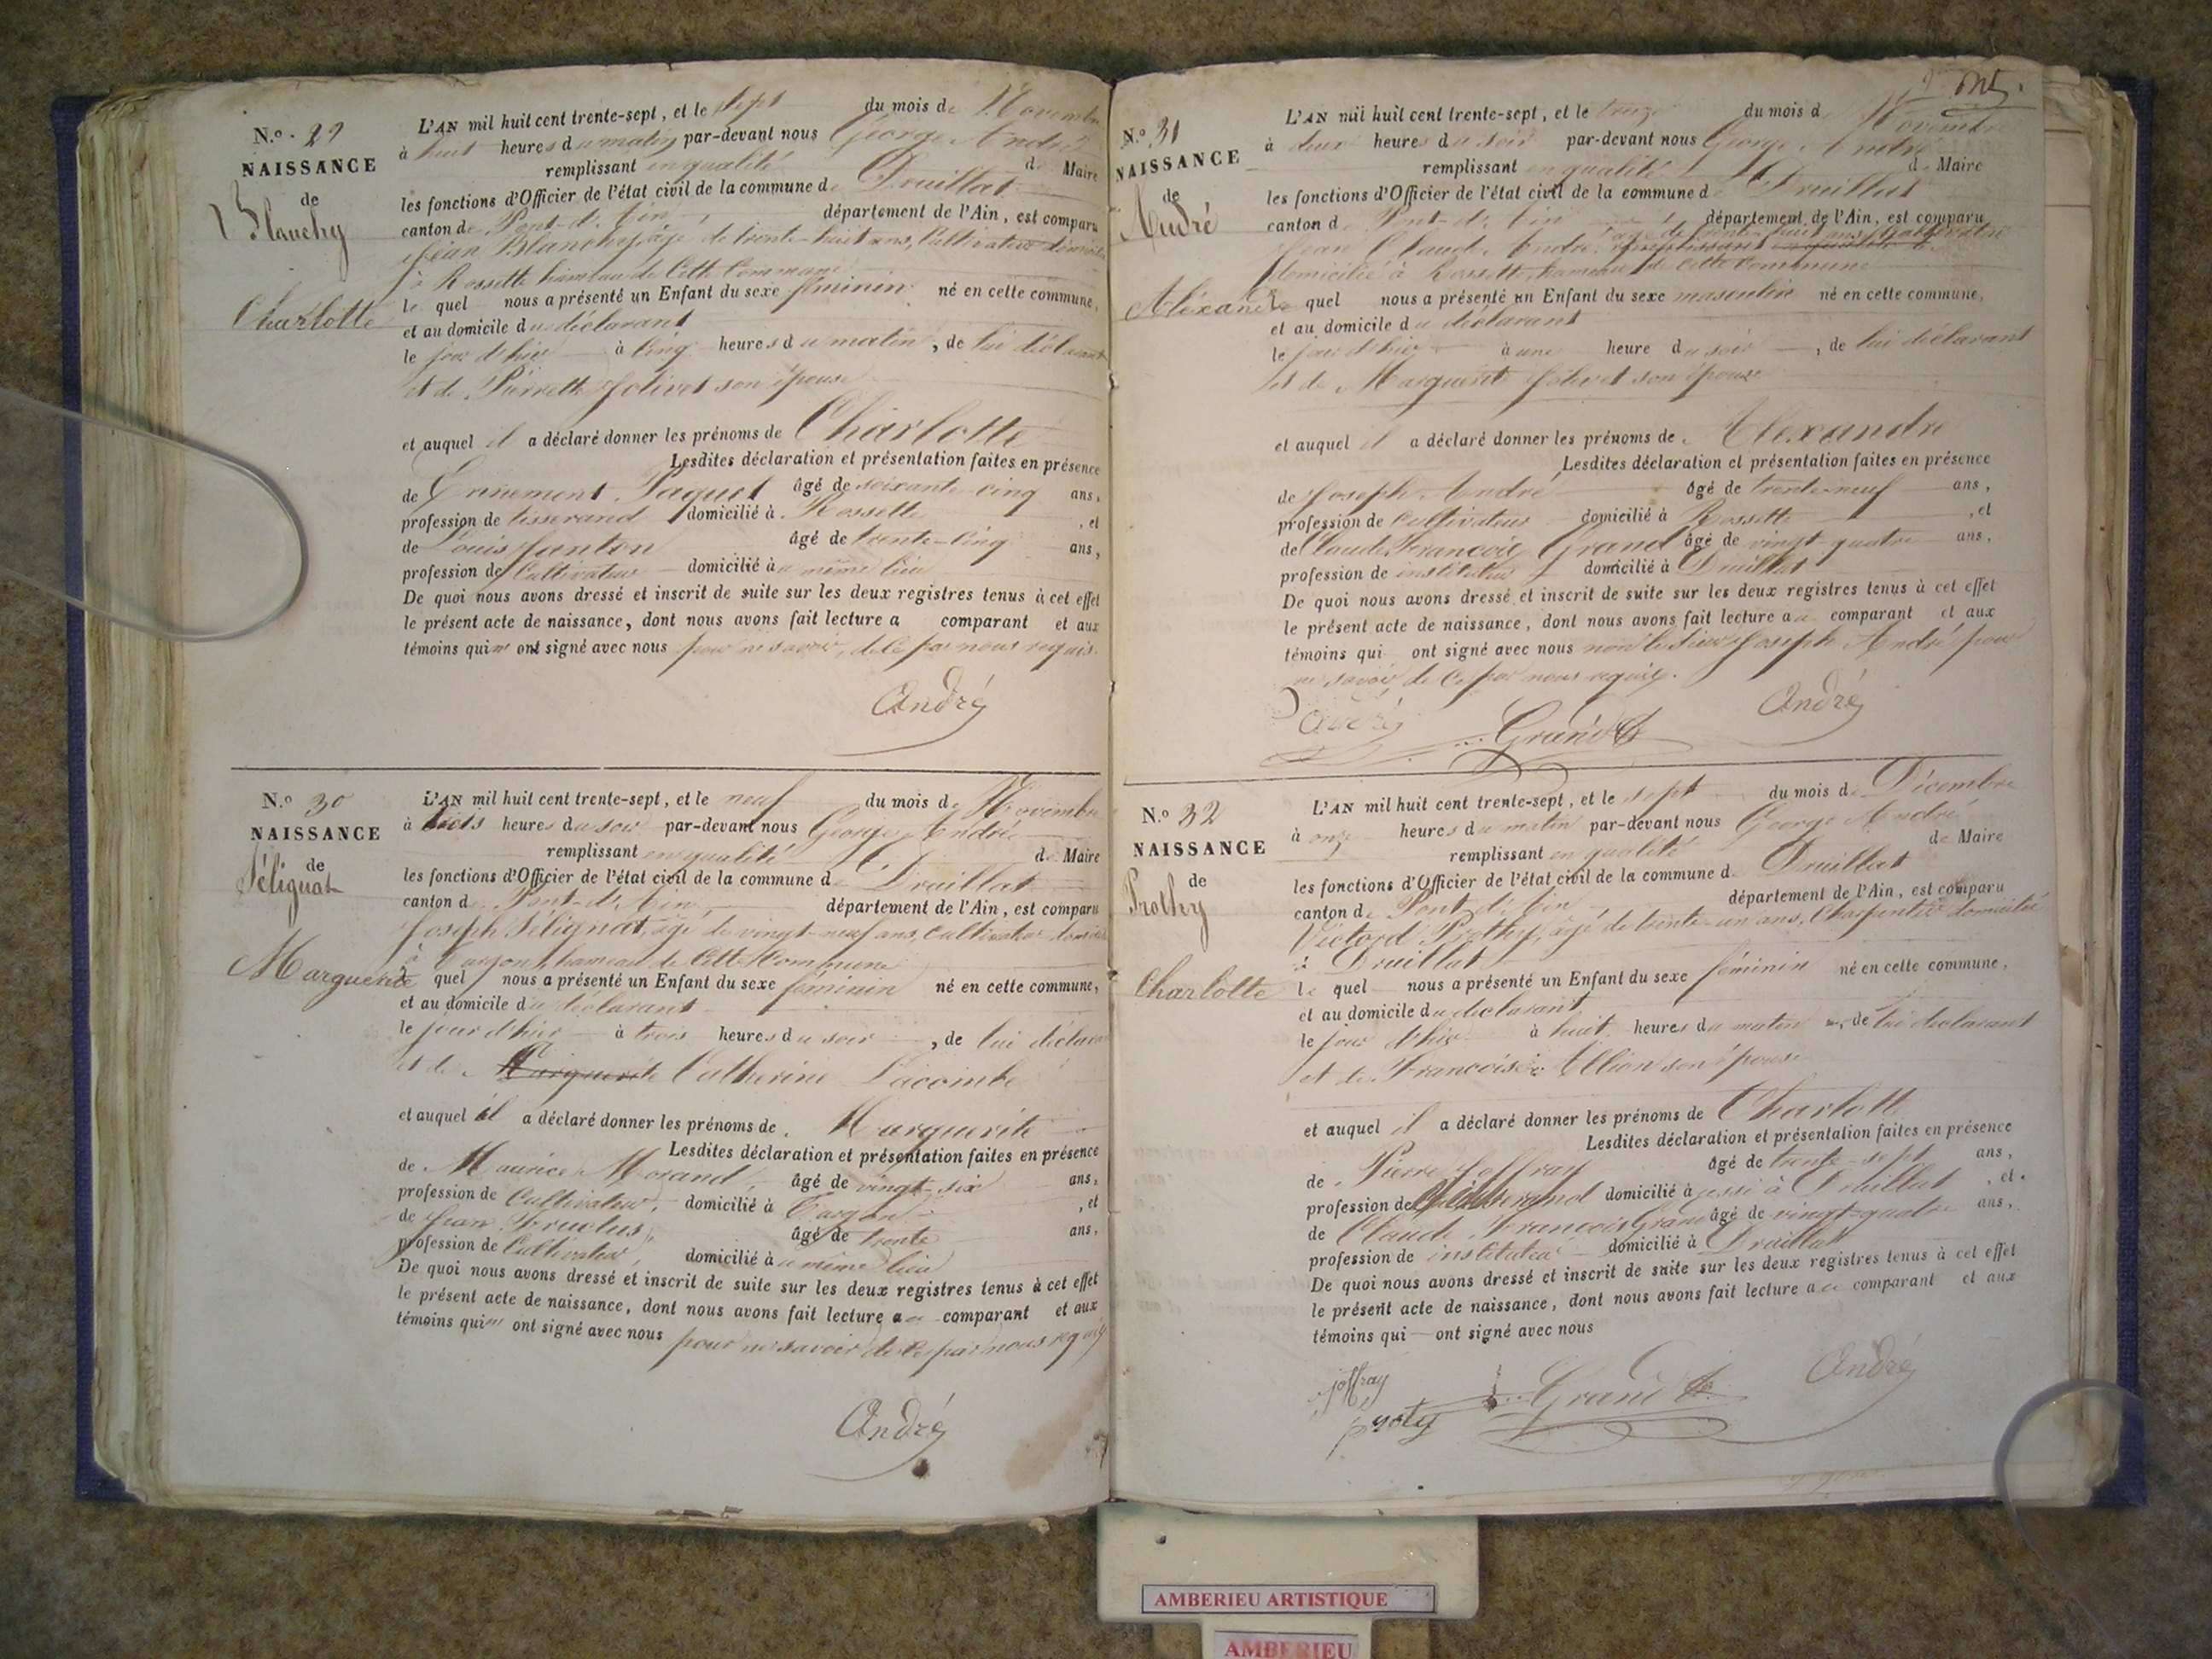 N.o 29
NAISSANCE
de
Blanchy
Charlotte
L'AN mil huit cent trente-sept, et le sept du mois de Novembre
à huit heures du matin par-devant nous George André
remplissant en qualité de Maire
les fonctions d'Officier de l'état civil de la commune de Druillat
canton de Pont-d'Ain, département de l'Ain, est comparu
Jean Blanchy, âgé de trente-huit ans, Cultivateur domicilié
à Rossette hameau de Cette Commune
le quel nous a présenté un Enfant du sexe féminin né en cette commune,
et au domicile du déclarant
le jour d'hier à cinq heures du matin, de lui déclarant
et de Pierrette Jolivet son épouse
et auquel il a déclaré donner les prénoms de Charlotte
Lesdites déclaration et présentation faites en présence
de Ennemont Paquet âgé de soixante-cinq ans,
profession de tisserand domicilié à Rossette, et
de Louis Janton âgé de trente-cinq ans,
profession de Cultivateur domicilié au même lieu
De quoi nous avons dressé et inscrit de suite sur les deux registres tenus à cet effet
le présent acte de naissance, dont nous avons fait lecture a comparant et aux
témoins qui n'ont signé avec nous pour ne savoir, de ce par nous requis.
André
N.o 30
NAISSANCE
de
Pélignat
Marguerite
L'AN mil huit cent trente-sept, et le neuf du mois de Novembre
à heures du soir par-devant nous George André
remplissant en qualité de Maire
les fonctions d'Officier de l'état civil de la commune de Druillat
canton de Pont-d'Ain, département de l'Ain, est comparu
Joseph Pélignat, âgé de vingt-neuf ans, Cultivateur, domicilié
à hameau de Cette Commune
le quel nous a présenté un Enfant du sexe féminin né en cette commune,
et au domicile du déclarant
le jour d'hier à trois heures du soir, de lui déclarant
et de Marguerite Catherine Lacombe
et auquel il a déclaré donner les prénoms de Marguerite
Lesdites déclaration et présentation faites en présence
de Maurice Morand, âgé de vingt-six ans,
profession de Cultivateur, domicilié à, et
de Jean âgé de trente ans,
profession de Cultivateur, domicilié au même lieu
De quoi nous avons dressé et inscrit de suite sur les deux registres tenus à cet effet
le présent acte de naissance, dont nous avons fait lecture au comparant et aux
témoins qui n'ont signé avec nous pour ne savoir de ce par nous requis
André
N.o 31
NAISSANCE
de
André
Alexandre
L'AN mil huit cent trente-sept, et le treize du mois d Novembre
à deux heures du soir par-devant nous George André
remplissant en qualité de Maire
les fonctions d'Officier de l'état civil de la commune de Druillat
canton de Pont-d'Ain département de l'Ain, est comparu
Jean Claude André
domicilié à Rossette, hameau de cette Commune
le quel nous a présenté un Enfant du sexe masculin né en cette commune,
et au domicile du déclarant
le jour d'hier à une heure du soir, de lui déclarant
et de Marguerite Jolivet son épouse
et auquel il a déclaré donner les prénoms de Alexandre
Lesdites déclaration et présentation faites en présence
de Joseph André âgé de trente-neuf ans,
profession de Cultivateur domicilié à Rossette, et
de Claude François Grand âgé de vingt-quatre ans,
profession de instituteur domicilié à Druillat
De quoi nous avons dressé et inscrit de suite sur les deux registres tenus à cet effet
le présent acte de naissance, dont nous avons fait lecture au comparant et aux
témoins qui ont signé avec nous non le sieur Joseph André pour
ne savoir, de ce par nous requis.
André Grand André
N.o 32
NAISSANCE
de
Prothy
Charlotte
L'AN mil huit cent trente-sept, et le sept du mois de Décembre
à onze heures du matin par-devant nous George André
remplissant en qualité de Maire
les fonctions d'Officier de l'état civil de la commune de Druillat
canton de Pont-d'Ain département de l'Ain, est comparu
Victord Prothy, âgé de trente-un ans, Charpentier domicilié
à Druillat
le quel nous a présenté un Enfant du sexe féminin né en cette commune,
et au domicile du déclarant
le jour d'hier à huit heures du matin, de lui déclarant
et de Françoise Allion son épouse
et auquel il a déclaré donner les prénoms de Charlotte
Lesdites déclaration et présentation faites en présence
de Pierre Joffray âgé de trente-sept ans,
profession de tisserand domicilié à Druillat, et
de Claude François Grand âgé de vingt-quatre ans,
profession de instituteur domicilié à Druillat
De quoi nous avons dressé et inscrit de suite sur les deux registres tenus à cet effet
le présent acte de naissance, dont nous avons fait lecture au comparant et aux
témoins qui ont signé avec nous
joffray Grand André
proty
AMBERIEU ARTISTIQUE
AMBERIEU